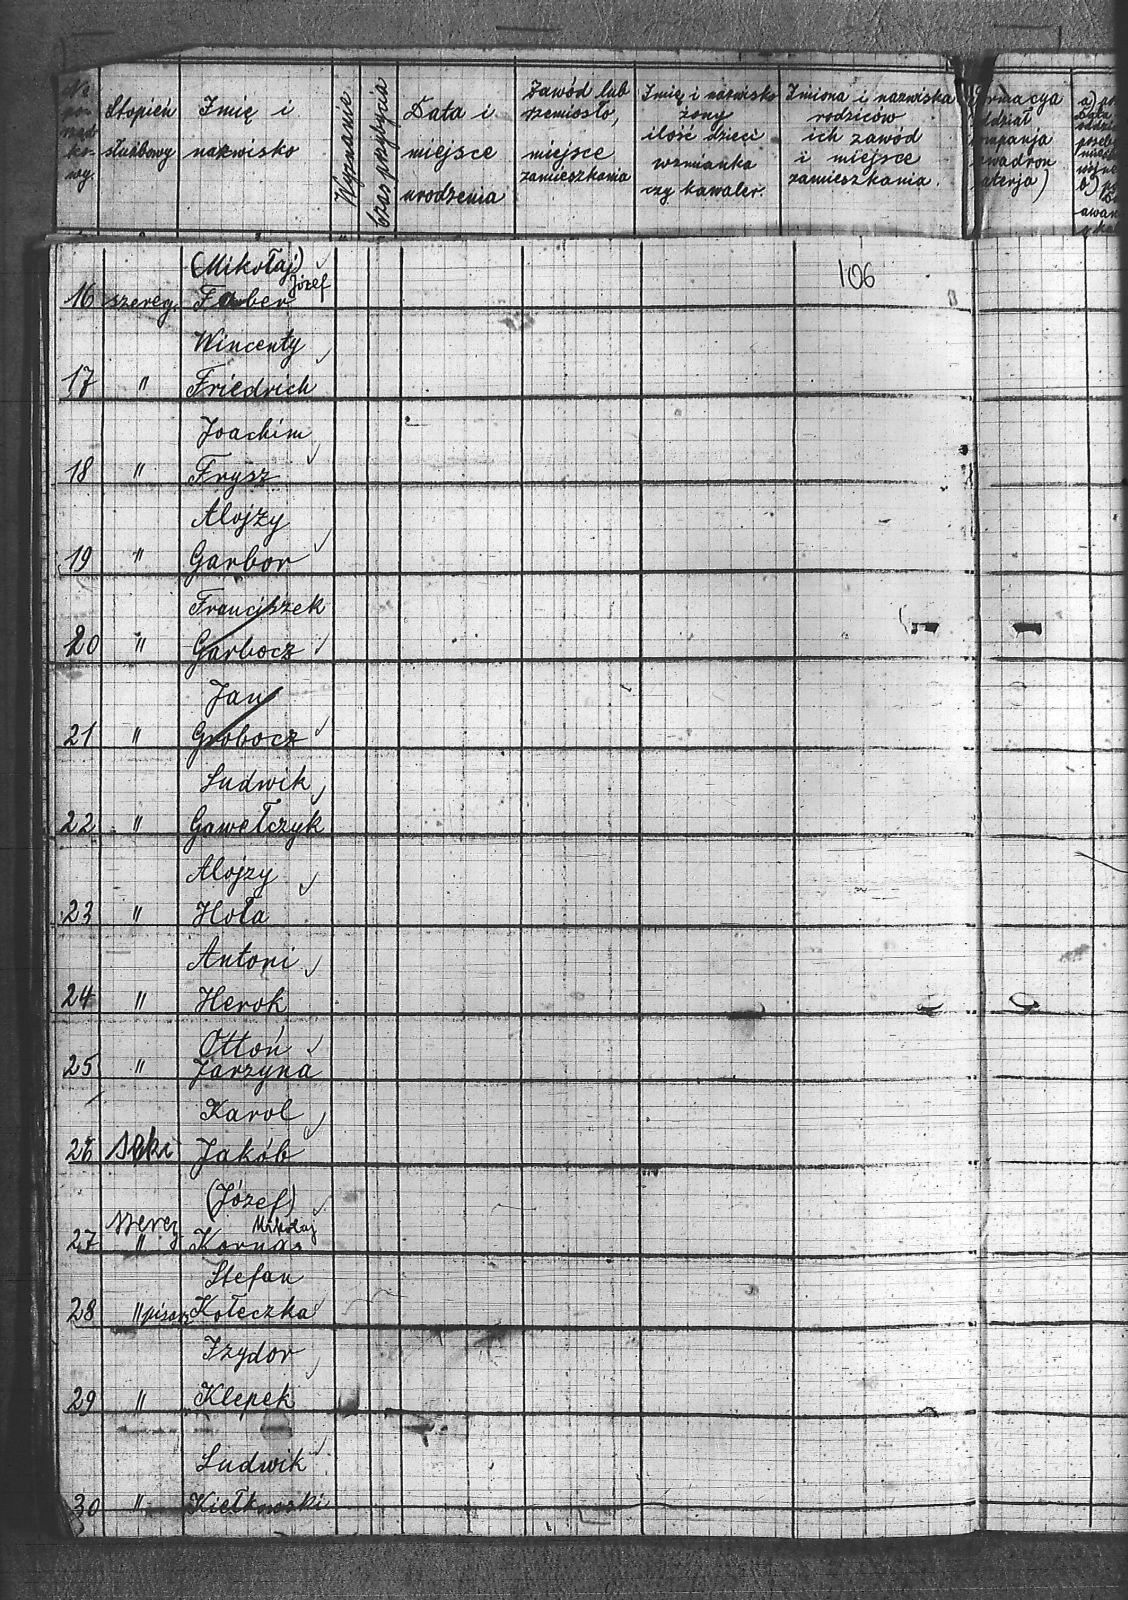 No
po-
rząd
ko-
wy.
Stopień
służbowy
Imię i
nazwisko
Wyznanie
Czas przybycia
Data i
miejsce
urodzenia
Zawód lub
rzemiosło,
miejsce
zamieszkania
Imię i nazwisko
żony
ilość dzieci
wzmianka
czy kawaler.
Imiona i nazwiska
rodziców
ich zawód
i miejsce
zamieszkania.
rmacya
ddział
mpanja
wadron
aterja)
a)
b)
106
(Mikołaj)
Józef
16 szereg. Farber
Wincenty
17 " Friedrich
Joachim
18 " Frysz
Alojzy
19 " Garbor
Franciszek
20 " Garbocz
Jan
21 " Grobocz
Ludwik
22 " Gawełczyk
Alojzy
23 " Hoła
Antoni
24 " Herok
Ottoń
25 " Jarzyna
Karol
26 Jakób
(Józef)
szereg Mikołaj
27 " Kornas
Stefan
28 " pisarz Kołeczka
Izydor
29 " Klepek
Ludwik
30 " Kiełkowski